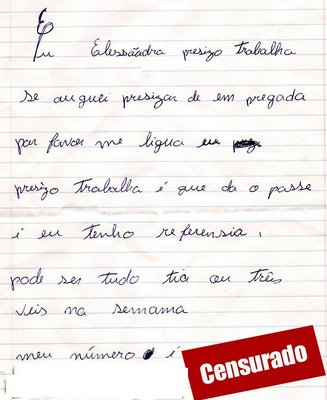 Eu Elessãadra presizo trabalha
se auguei presizar de em pregada
par favor me ligua eu
presizo trabalha é que da o passe
i eu tenho referensia,
pode ser tudo tia ou três
veis na semama
meu número é
Censurado